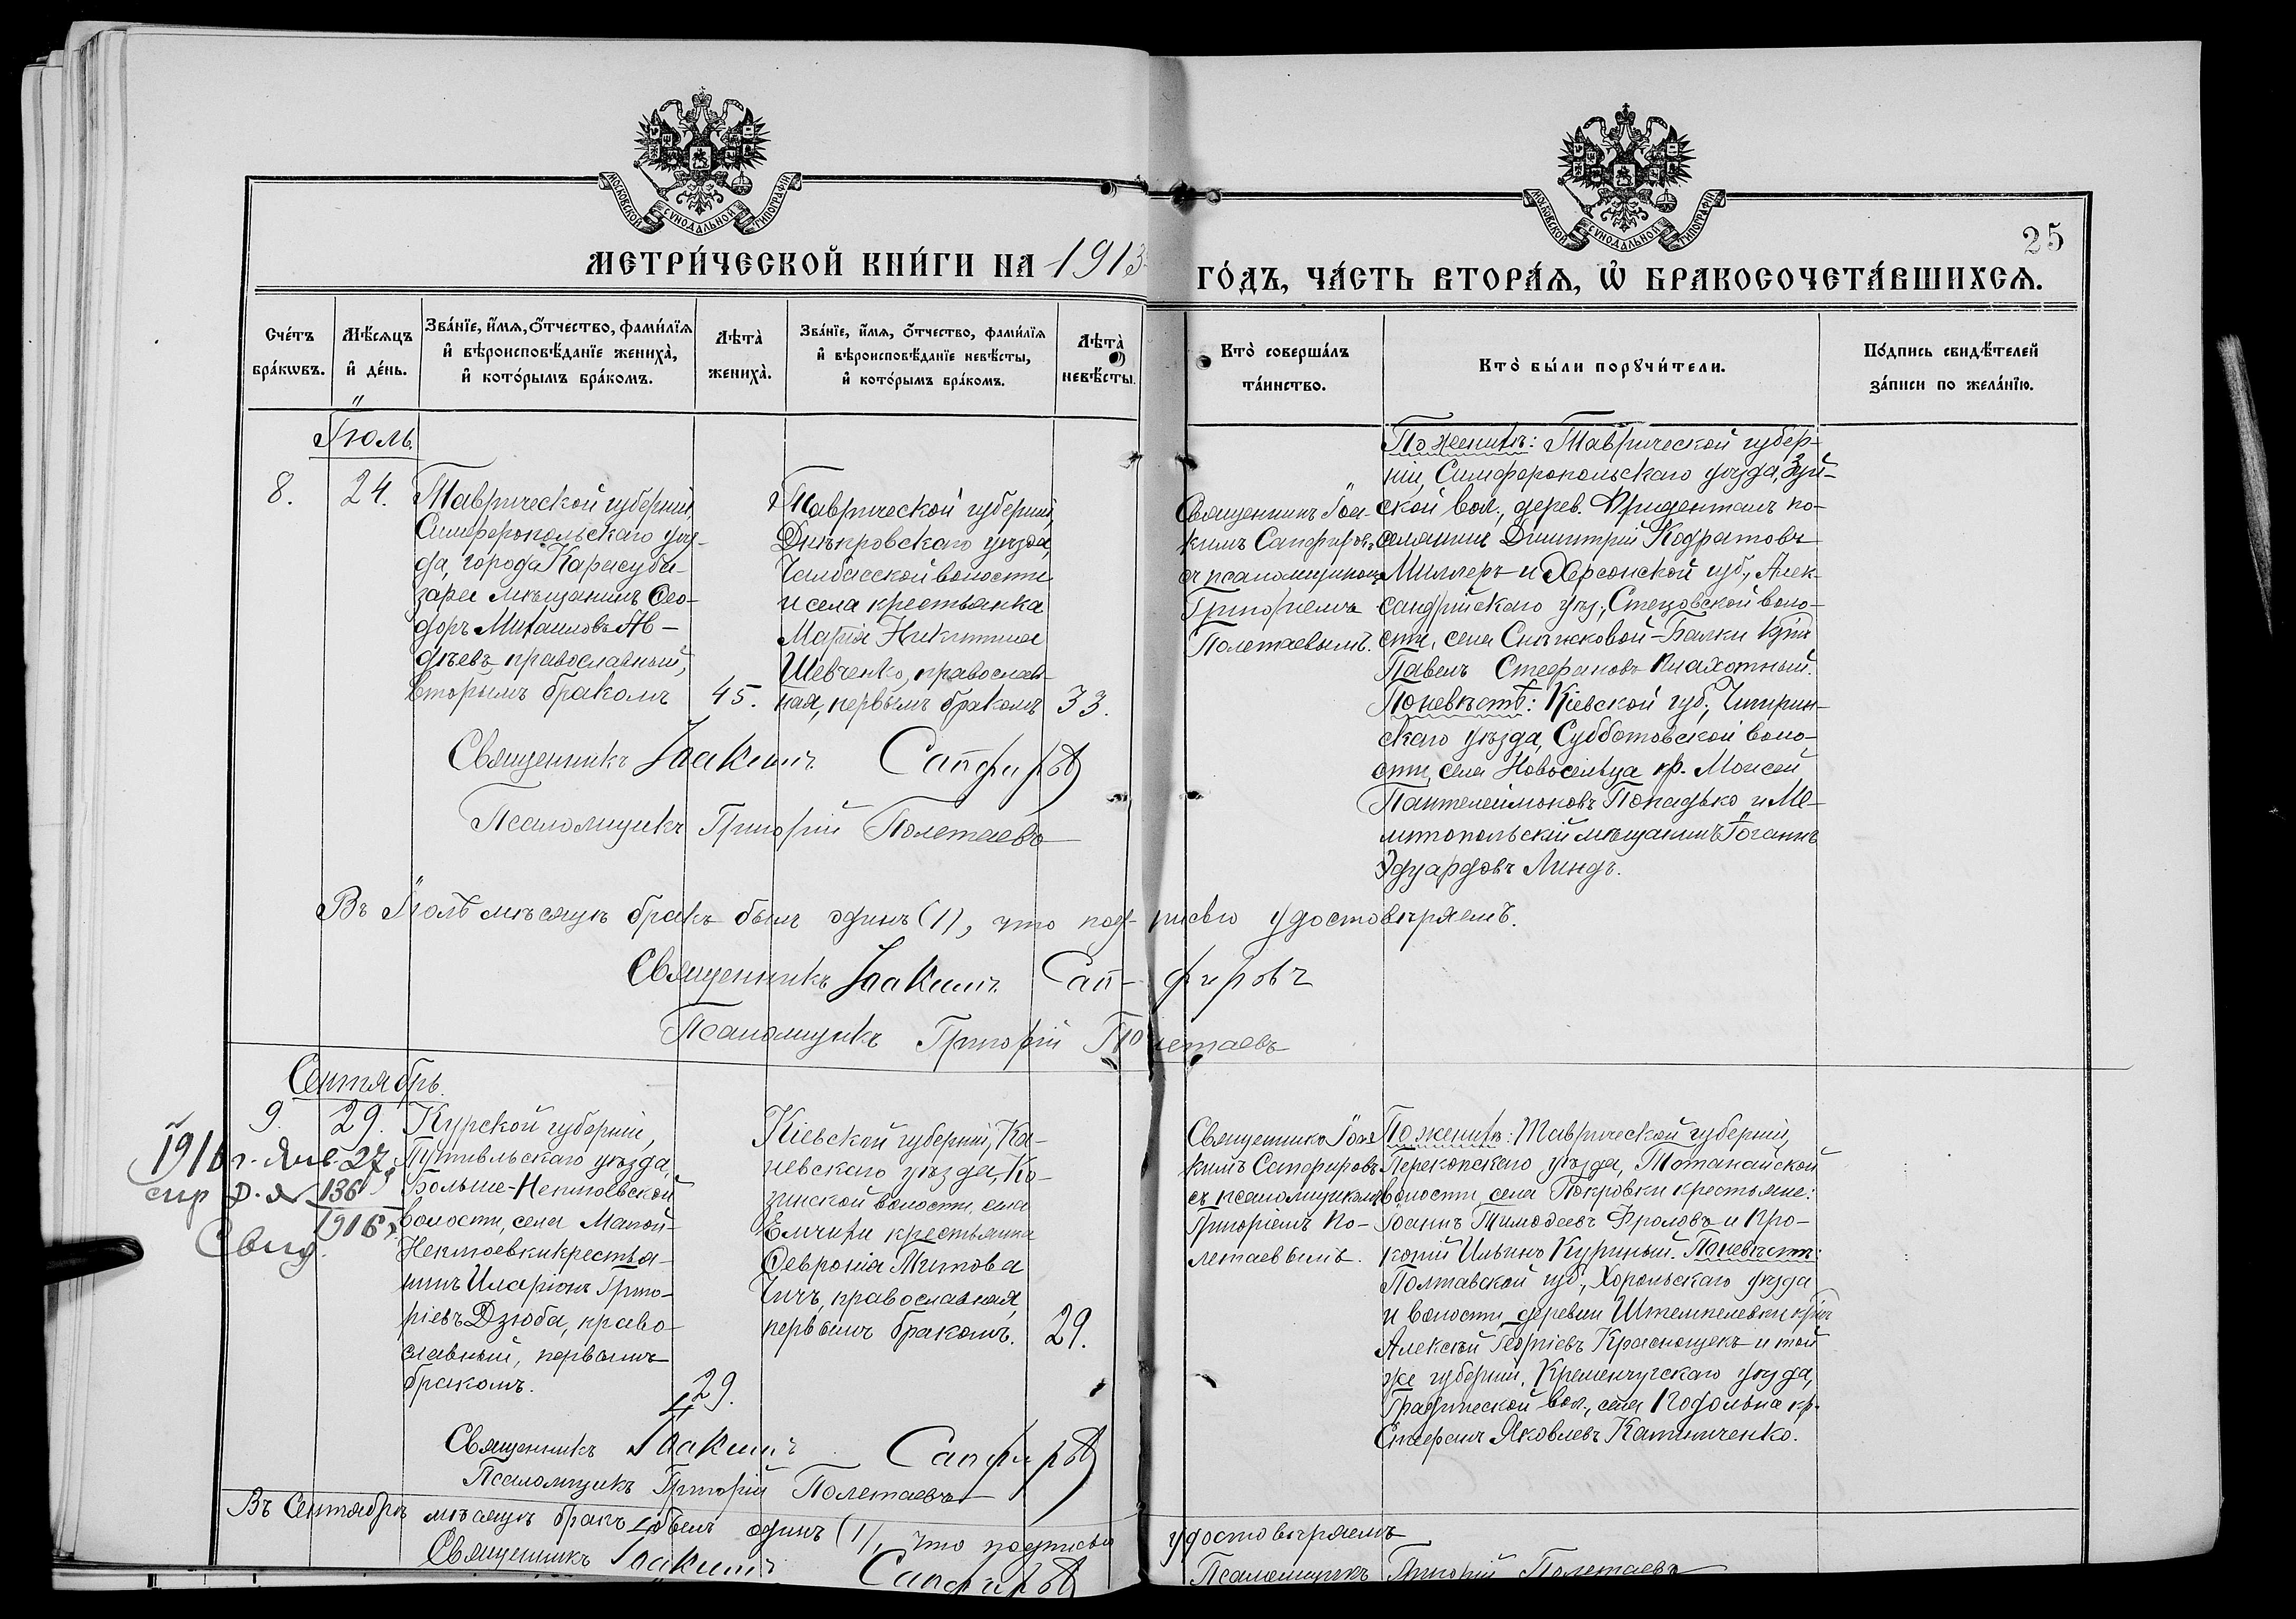 МОСКОВСКОЙ СУНОДАЛЬНОЙ ТИПОГРАФІИ
МОСКОВСКОЙ СУНОДАЛЬНОЙ ТИПОГРАФІИ
25
МЕТРИ́ЧЕСКОЙ КНИ́ГИ НА 1913
ГО́ДЪ, ЧА́СТЬ ВТОРА́Ѧ, Ѽ БРАКОСОЧЕТА́ВШИХСѦ.
Сче́тъ бра́кѡвъ.
Мѣ́сѧцъ и҆ де́нь.
Зва́нїе, и҆́мѧ, ѻ҆́тчество, фами́лїѧ и҆ вѣроисповѣ́данїе жениха̀, и҆ кото́рымъ бра́комъ.
Лѣта̀ жениха̀.
Зва́нїе, и҆́мѧ, ѻ҆́тчество, фами́лїѧ и҆ вѣроисповѣ́данїе невѣ́сты, и҆ кото́рымъ бра́комъ.
Лѣта̀ невѣ́сты.
Кто̀ соверша́лъ та́инство.
Кто̀ бы́ли порꙋчи́тели.
По́дпись свидѣ́телей за́писи по жела́нїю.
Іюль
8.
24.
Таврической губерніи,
Симферопольскаго уѣз-
да, города Карасуба-
зара мѣщанинъ Ѳео-
доръ Михаиловъ Ав-
дѣевъ, православный,
вторымъ бракомъ
45.
Таврической губерніи,
Днѣпровскаго уѣзда,
Чалбасской волости
и села крестьянка
Марія Никитина
Шевченко, православ-
ная, первымъ бракомъ
33.
Священникъ Іоа-
кимъ Сапфировъ
съ псаломщикомъ
Григоріемъ
Полетаевымъ.
По женихѣ: Таврической губер-
ніи, Симферопольскаго уѣзда, Зуй-
ской вол., дерев. Фриденталь по-
селянинъ Димитрій Кодратовъ
Миллеръ и Херсонской губ., Алек-
сандрійскаго уѣз., Стецовской воло-
сти, села Снѣжковой-Балки кр͠нъ
Павелъ Стефановъ Плахотный.
По невѣстѣ: Кіевской губ., Чигирин-
скаго уѣзда, Субботовской воло-
сти, села Новосельца кр. Моисей
Пантелеймоновъ Понадько и Ме-
литопольскій мѣщанинъ Іоганнъ
Эдуардовъ Линдъ.
Священникъ Іоакимъ Сапфировъ
Псаломщикъ Григорій Полетаевъ
Въ Іюлѣ мѣсяцѣ бракъ былъ одинъ (1), что под-писью удостовѣряемъ.
Священникъ Іоакимъ Сап-фировъ
Псаломщикъ Григорій Полетаевъ
Сентябрь.
9.
29.
1916 г. Янв. 27.
136
1916
Свид.
Курской губерніи,
Путивльскаго уѣзда,
Больше-Неплюевской
волости, села Малой-
Неплюевки крестья-
нинъ Иларіонъ Григо-
ріевъ Дзюба, право-
славный, первымъ
бракомъ.
29.
Кіевской губерніи, Ка-
невскаго уѣзда, Ко-
зинской волости, села
Емчихи крестьянка
Ѳевронія Титова
Чичъ, православная,
первымъ бракомъ.
29.
Священникъ Іоа-
кимъ Сапфировъ
съ псаломщикомъ
Григоріемъ По-
летаевымъ.
По женихѣ: Таврической губерніи,
Перекопскаго уѣзда, Тотанайской
волости, села Покровки крестьяне:
Іоаннъ Тимоѳеевъ Фроловъ и Про-
копій Ильинъ Куриный. По невѣстѣ:
Полтавской губ., Хорольскаго уѣзда
и волости, деревни Штемпелевки кр͠нъ
Алексѣй Георгіевъ Краснощекъ и той
же губерніи, Кременчугскаго уѣзда,
вол., села Подольна кр.
Стефанъ Яковлевъ Калиниченко.
Священникъ Іоакимъ Сапфировъ
Псаломщикъ Григорій Полетаевъ
Въ Сентябрѣ мѣсяцѣ бракъ былъ одинъ (1), что подписью удостовѣряемъ
Священникъ Іоакимъ Сапфировъ Псаломщикъ Григорій Полетаевъ